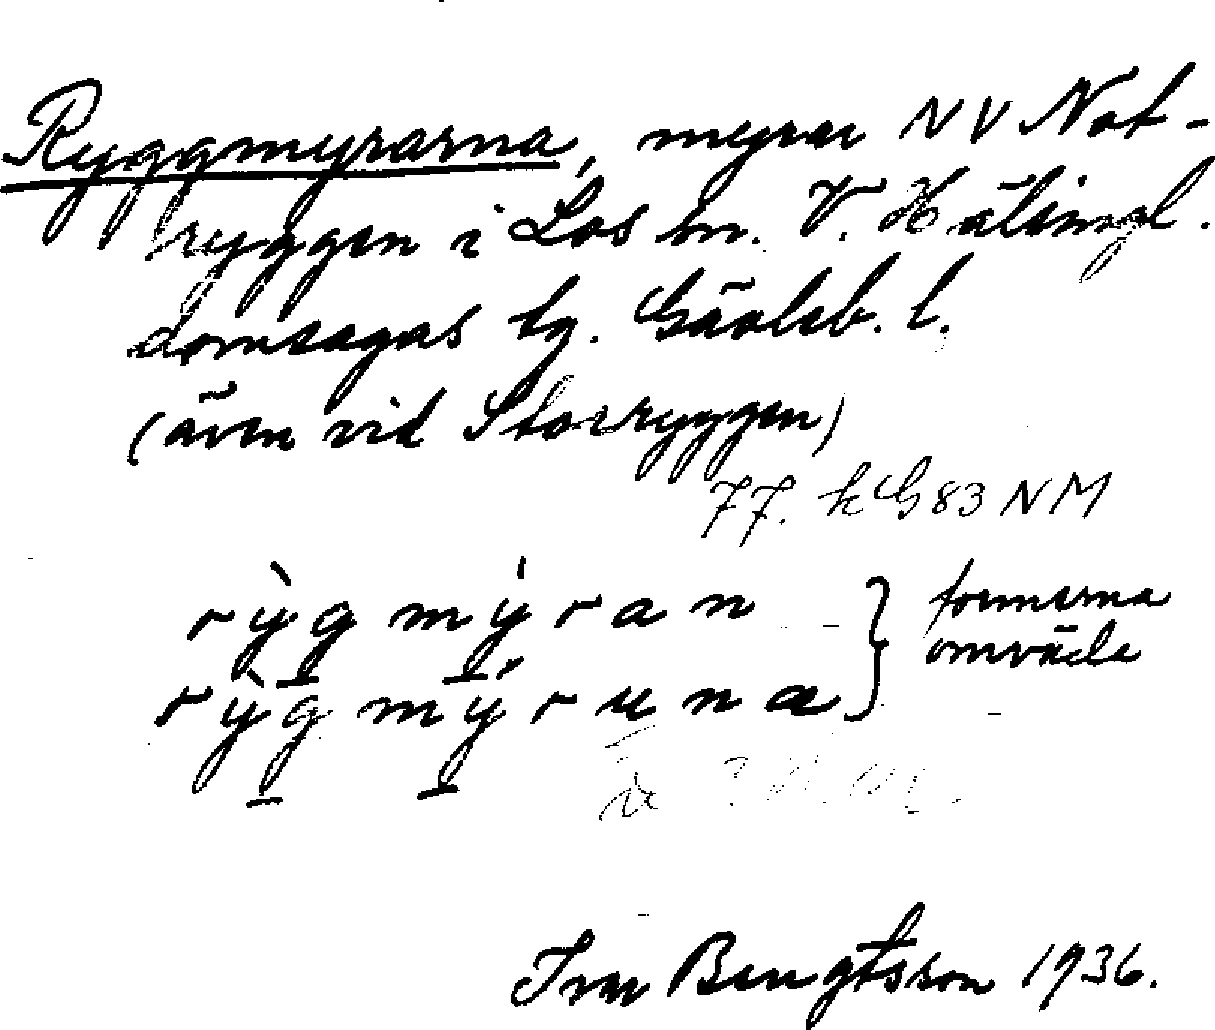 Ryggmyrarna, myrar NV Not-
ryggen i Los sn. V. Hälsingl.
domsagas tg. Gävleb. l.
(även vid Storryggen)
77. kG83 NM
rỳgmýran } formerna
rỳgmýruna } omväde
Ivar Bengtsson 1936.